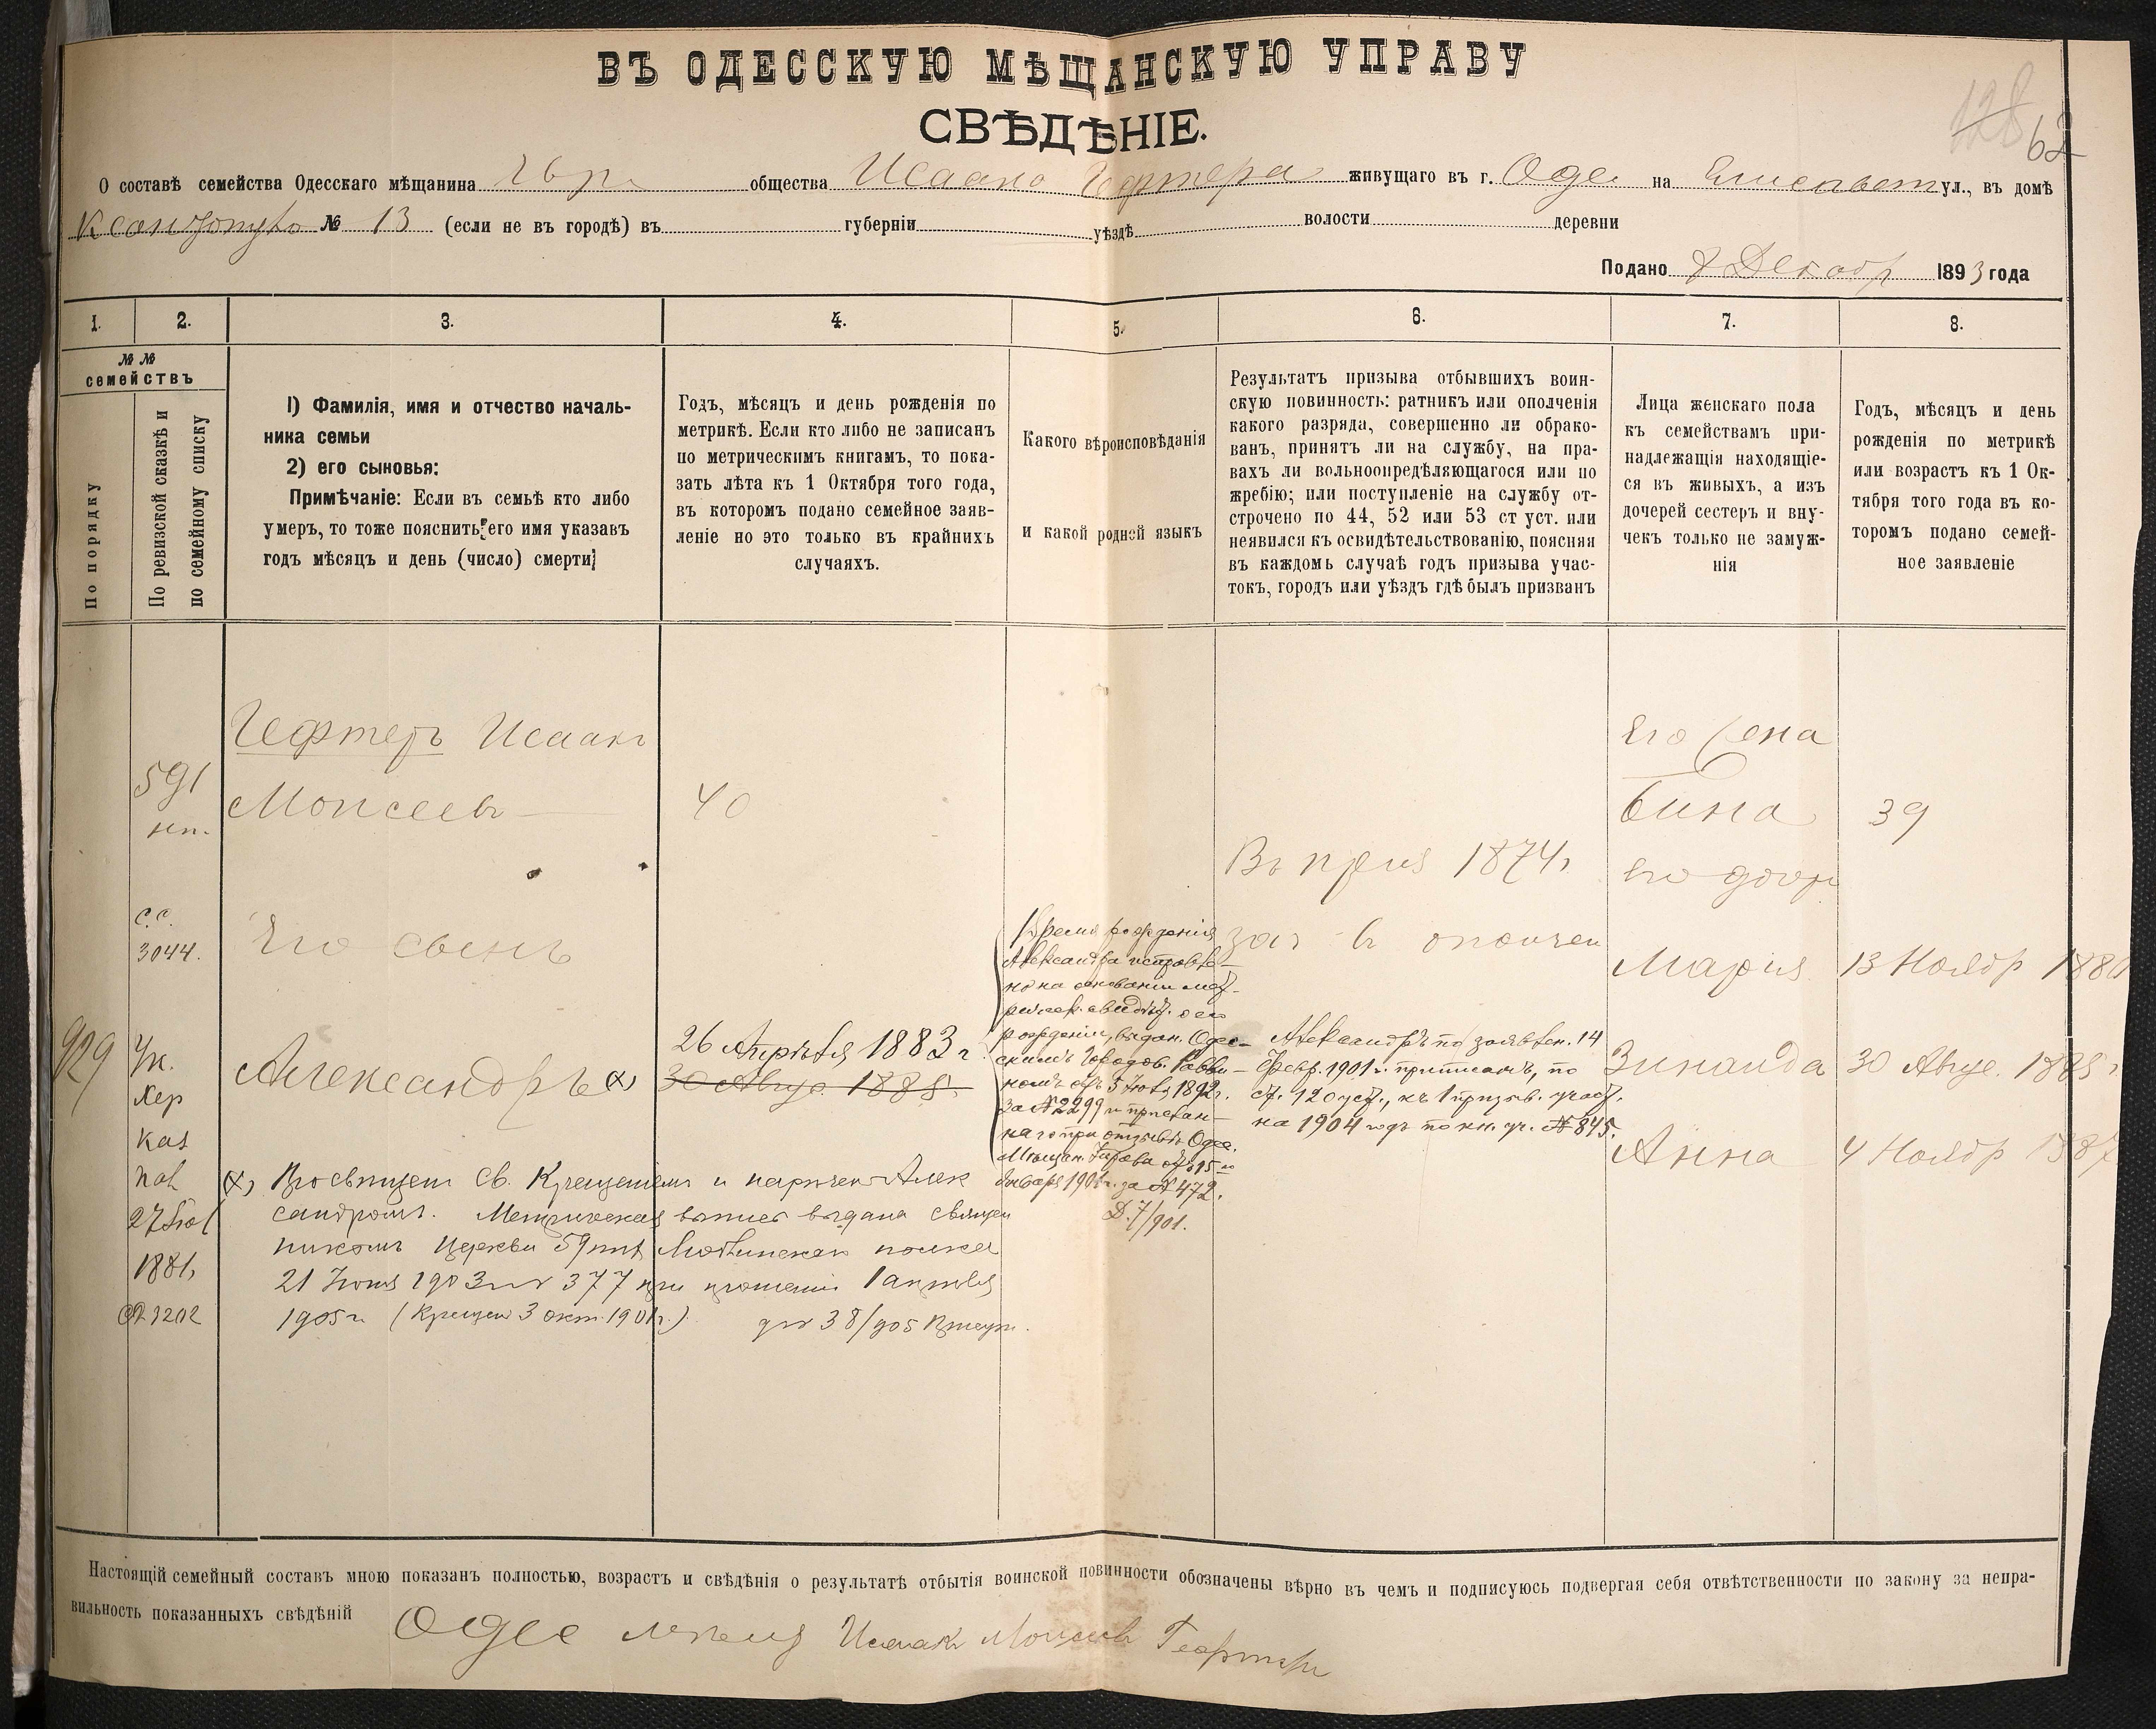 ВЪ ОДЕССКУЮ МѢЩАНСКУЮ УПРАВУ
СВѢДѢНІЕ.
128 62
О составѣ семейства Одесскаго мѣщанина Евр общества Исаака Гефтера живущаго въ г. Оде на Елисавет ул., въ домѣ
№ 13 (если не въ городѣ) въ губерніи уѣздѣ волости деревни
Подано 8 Декабр 1893 года
1. 2. 3. 4. 5. 6. 7. 8.
№№
семействъ
По порядку
По ревизской сказкѣ и
по семейному списку
1) Фамилія, имя и отчество началь-
ника семьи
2) его сыновья:
Примѣчаніе: Если въ семьѣ кто либо
умеръ, то тоже пояснить его имя указавъ
годъ мѣсяцъ и день (число) смерти
Годъ, мѣсяцъ и день рожденія по
метрикѣ. Если кто либо не записанъ
по метрическимъ книгамъ, то пока-
зать лѣта къ 1 Октября того года,
въ которомъ подано семейное заяв-
леніе но это только въ крайнихъ
случаяхъ.
Какого вѣроисповѣданія
и какой родной языкъ
Результатъ призыва отбывшихъ воин-
скую повинность: ратникъ или ополченія
какого разряда, совершенно ли обрако-
ванъ, принятъ ли на службу, на пра-
вахъ ли вольноопредѣляющагося или по
жребію; или поступленіе на службу от-
строчено по 44, 52 или 53 ст уст. или
неявился къ освидѣтельствованію, поясняя
въ каждомъ случаѣ годъ призыва учас-
токъ, городъ или уѣздъ гдѣ былъ призванъ
Лица женскаго пола
къ семействамъ при-
надлежащія находящіе-
ся въ живыхъ, а изъ
дочерей сестеръ и вну-
чекъ только не замуж-
нія
Годъ, мѣсяцъ и день
рожденія по метрикѣ
или возрастъ къ 1 Ок-
тября того года въ ко-
торомъ подано семей-
ное заявленіе
591
Гефтеръ Исаакъ
Моисеевъ
40
Его жена
Бина
39
Въ приз 1874 г.
зач въ ополчен
его дочер
С.С.
3044.
Его сынъ
Марія
13 Ноябр 188
929
Ук.
Хер
Каз
Пал
27 Іюл
1881,
№ 3202
Александръ х)
26 Апрѣля 1883 г.
30 Авгус. 1885.
Время рожденія
Александра исправле-
но на основаніи мет-
рическ. свидѣт. о его
рожденіи, выдан. Одес-
скимъ Городов. Равви-
номъ отъ 5 1892 г.
за № 2299 и прислан-
наго при отзывѣ Одес.
Мѣщан. Управы отъ 15-го
Января 1901 г. за № 472.
Д. 7/901.
Александръ по заявлен. 14
Февр. 1901 г. приписанъ, по
ст. 120 уст., къ 1 призыв. участ.
на 1904 годъ по кн. уч. № 845.
Зинаида
30 Авгус. 1885 г
Анна
4 Ноябр 1887
х) Просвѣщен Св. Крещеніемъ и нареченъ Алек
сандромъ. Метрическая выпись выдана священ
никомъ Церкви 59 пѣх Люблинскаго полка
21 Іюня 1903 г. № 377 при прошеніи 1 апрѣля
1905 г. (Крещен 3 окт. 1901 г.) 38/905
Настоящій семейный составъ мною показанъ полностью, возрастъ и свѣдѣнія о результатѣ отбытія воинской повинности обозначены вѣрно въ чемъ и подписуюсь подвергая себя отвѣтственности по закону за непра-
вильность показанныхъ свѣдѣній
Одес Исаакъ Моисеевъ Гефтеръ